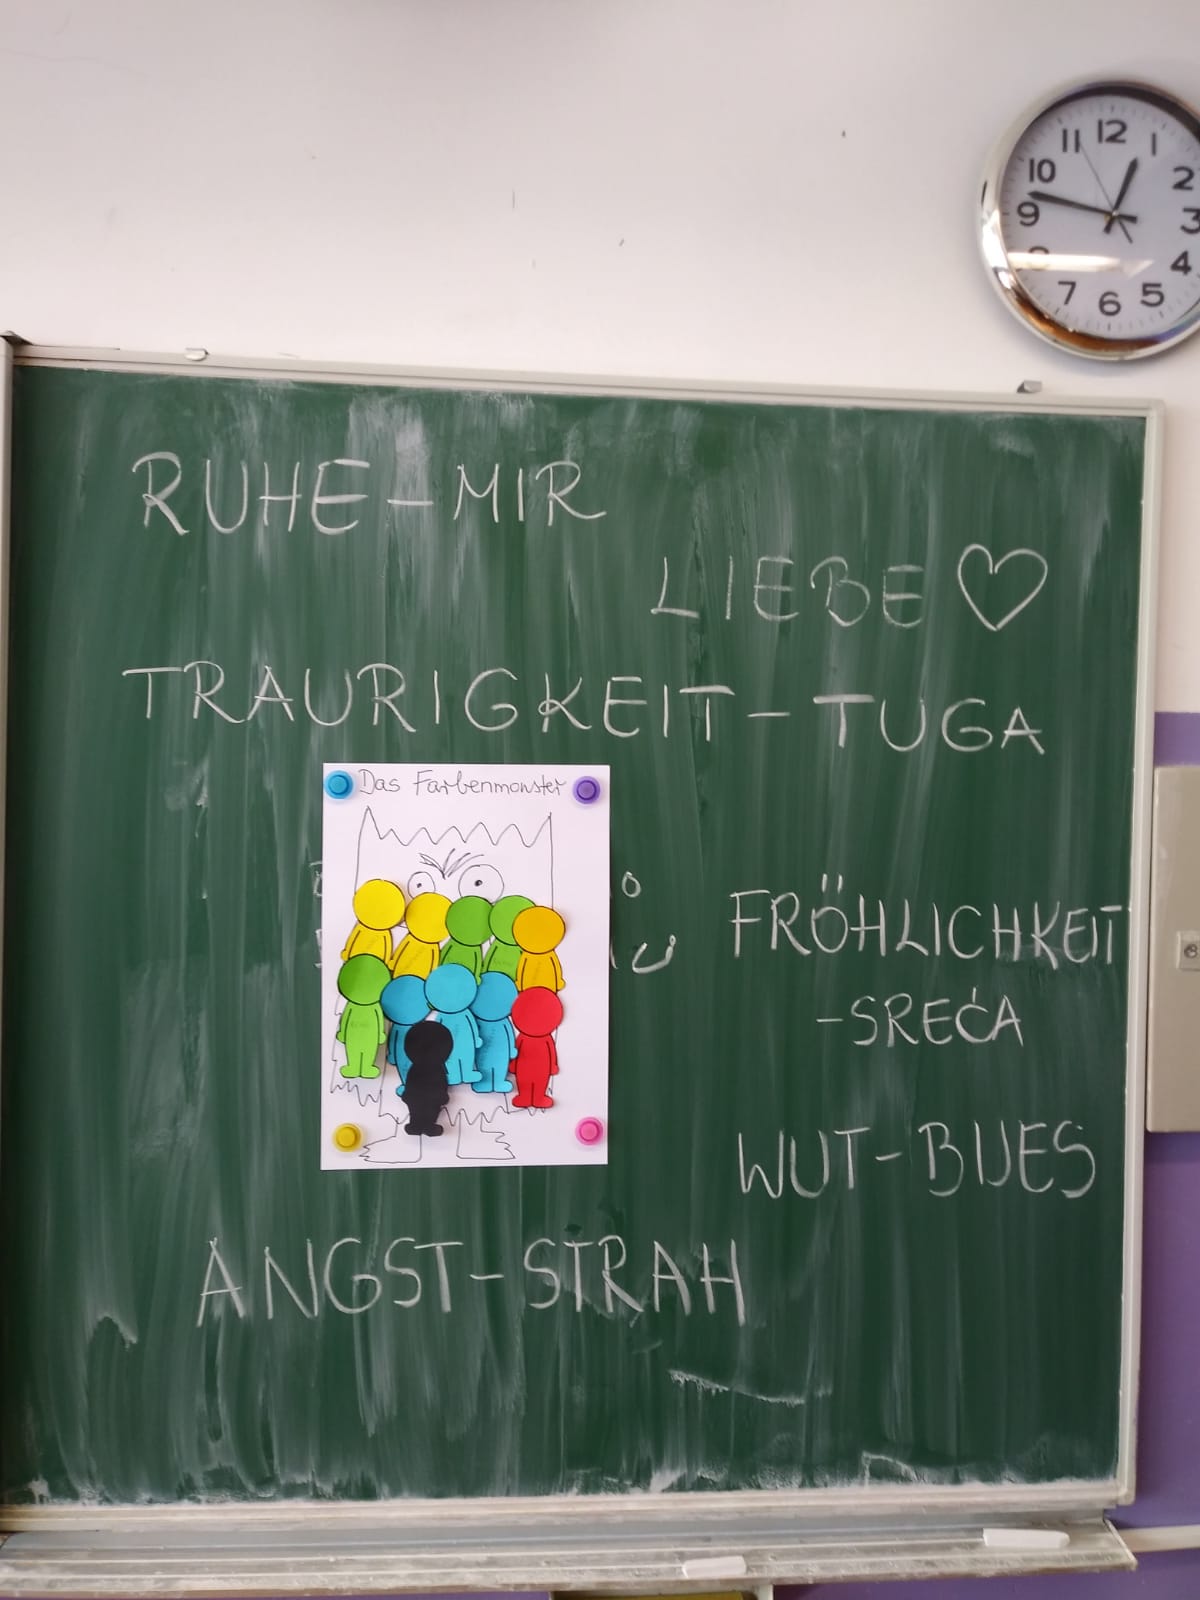 12
11
1
10
2
9
3
4
7
5
6
RUHE-MIR
LIEBE
TRAURIGKEIT-TUGA
Das Farbenmonster
FRÖHLICHKEIT
-SREĆA
WUT-BIJES
ANGST-STRAH